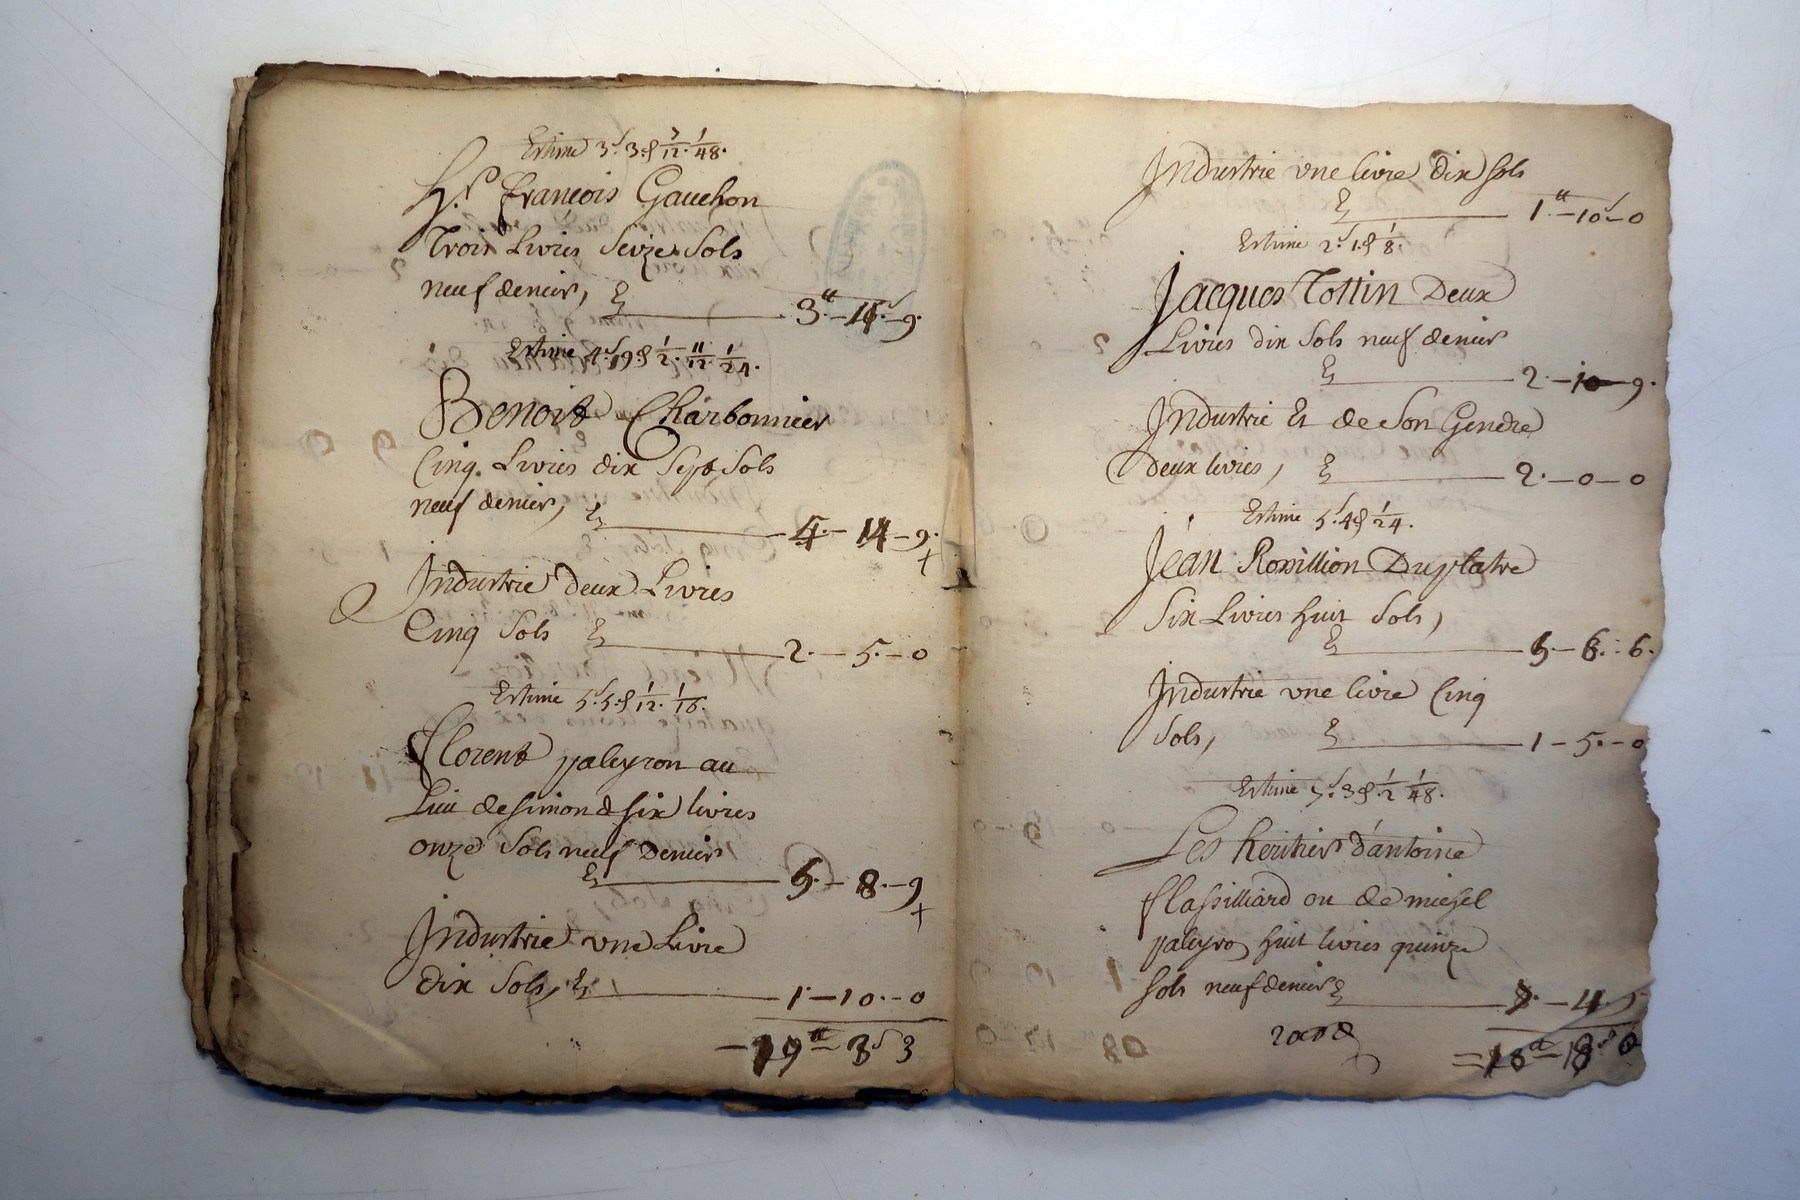 Estime 3ˢ 3 ₰ 7/12. 1/48.
Sʳ François Gauchon
Trois Livres Seize Sols
neuf denier, 3ᵗᵗ - - 9.
Estime 4ˢ 19 ₰ 1/2. 11/12. 1/24.
Benoit Charbonnier
Cinq Livres dix Sept Sols
neuf denier, 4. - 14 - 9.
Industrie deux Livres
Cinq Sols 2. - 5. - 0
Estime 5ˢ 5 ₰ 1/12. 1/16.
florent paleyron au
Lieu de simond six livres
onze Sols neuf Denier
- 8. - 9
Industrie une Livre
dix Sols, 1. - 10. - 0
19ᵗᵗ - 3ˢ 3
Industrie une livre dix sols
1.ᵗᵗ - 10ˢ - 0
Estime 2ˢ 1 ₰ 1/8.
Jacques Tottin Deux
Livres dix Sols neuf denier
2. - 10 - 9.
Industrie Et de Son Gendre
deux livres, 2. - 0 - 0
Estime 5ˢ 4 ₰ 1/24.
Jean Rossillion Duplatre
Six Livres huit Sols,
- 6. - 6.
Industrie une livre Cinq
Sols, 1 - 5. - 0
Estime 7ˢ 3 ₰ 1/2 1/48.
Les heritiers d'antoine
flassilliard ou de michel
paleyro, huit livres quinze
sols neuf denier - 4
= 18ᵗᵗ - 18ˢ 0